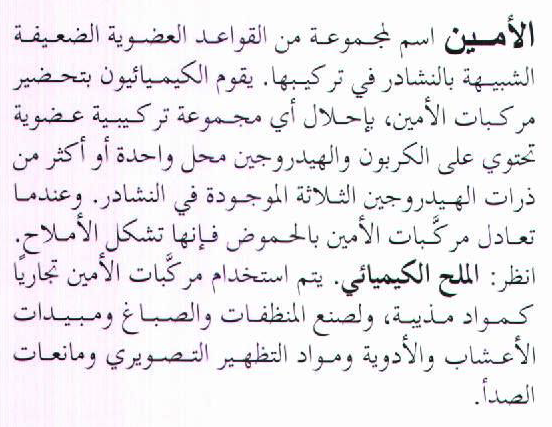 الأمين اسم لمجموعة من القواعد العضوية الضعيفة
الشبيهة بالنشادر في تركيبها. يقوم الكيميائيون بتحضير
مركبات الأمين، بإحلال أي مجموعة تركيبية عضوية
تحتوي على الكربون والهيدروجين محل واحدة أو أكثر من
ذرات الهيدروجين الثلاثة الموجودة في النشادر. وعندما
تعادل مركَّبات الأمين بالحموض فإنها تشكل الأملاح.
انظر: الملح الكيميائي. يتم استخدام مركَّبات الأمين تجاريًا
كمواد مذيبة، ولصنع المنظفات والصباغ ومبيدات
الأعشاب والأدوية ومواد التظهير التصويري ومانعات
الصدأ.